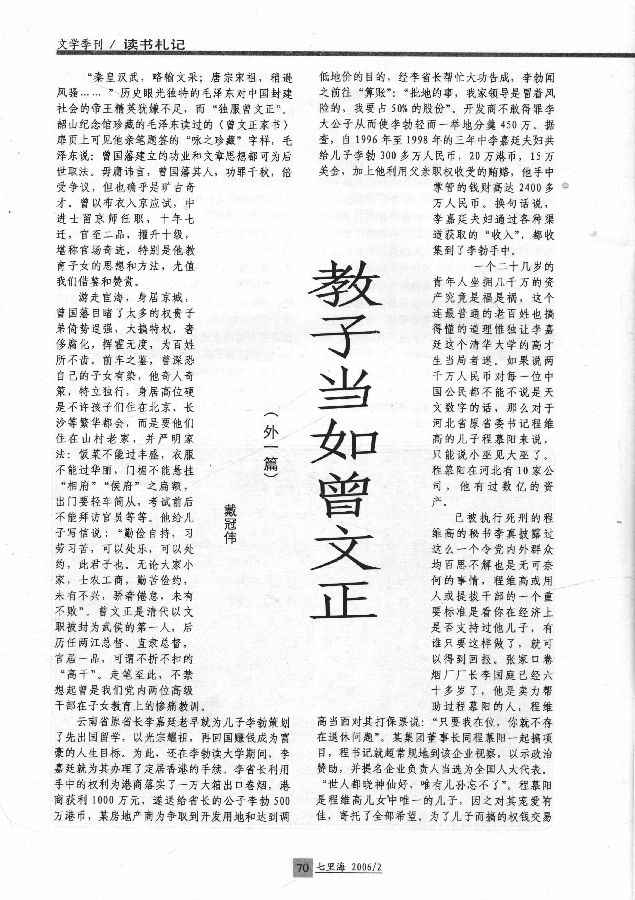 文学季刊 / 读书札记
教子当如曾文正
（外一篇）
戴冠伟
“秦皇汉武，略输文采；唐宗宋祖，稍逊
风骚……”历史眼光独特的毛泽东对中国封建
社会的帝王精英犹嫌不足，而“独服曾文正”。
韶山纪念馆珍藏的毛泽东读过的《曾文正家书》
扉页上可见他亲笔题签的“咏之珍藏”字样，毛
泽东说：曾国藩建立的功业和文章思想都可为后
世取法。毋庸讳言，曾国藩其人，功罪千秋，倍
受争议，但也确乎是旷古奇
才。曾以布衣入京应试，中
进士留京师任职，十年七
迁，官至二品，擢升十级，
堪称官场奇迹，特别是他教
育子女的思想和方法，尤值
我们借鉴和赞赏。
游走宦海，身居京城，
曾国藩目睹了太多的权贵子
弟倚势逞强，大搞特权，奢
侈腐化，挥霍无度，为百姓
所不齿。前车之鉴，曾深恐
自己的子女有染，他奇人奇
策，特立独行，身居高位硬
是不许孩子们住在北京、长
沙等繁华都会，而是要他们
住在山村老家，并严明家
法：饭菜不能过丰盛，衣服
不能过华丽，门楣不能悬挂
“相府”“侯府”之扁额，
出门要轻车简从，考试前后
不能拜访官员等等。他给儿
子写信说：“勤俭自持，习
劳习苦，可以处乐，可以处
约，此君子也。无论大家小
家，士农工商，勤苦俭约，
未有不兴，骄奢倦怠，未有
不败”。曾文正是清代以文
职被封为武侯的第一人，后
历任两江总督、直隶总督，
官居一品，可谓不折不扣的
“高干”。走笔至此，不禁
想起曾是我们党内两位高级
干部在子女教育上的惨痛教训。
云南省原省长李嘉廷老早就为儿子李勃策划
了先出国留学，以光宗耀祖，再回国赚钱成为富
豪的人生目标。为此，还在李勃读大学期间，李
嘉廷就为其办理了定居香港的手续。李省长利用
手中的权利为港商落实了一万大箱出口卷烟，港
商获利1000万元，遂送给省长的公子李勃500
万港币，某房地产商为争取到开发用地和达到调
低地价的目的，经李省长帮忙大功告成，李勃闻
之前往“算账”：“批地的事，我家领导是冒着风
险的，我要占50%的股份”。开发商不敢得罪李
大公子从而使李勃轻而一举地分羹450万。据
查，自1996年至1998年的三年中李嘉廷夫妇共
给儿子李勃300多万人民币，20万港币，15万
美金，加上他利用父亲职权收受的贿赂，他手中
掌管的钱财高达2400多
万人民币。换句话说，
李嘉廷夫妇通过各种渠
道获取的“收入”，都收
集到了李勃手中。
一个二十几岁的
青年人坐拥几千万的资
产究竟是福是祸，这个
连最普通的老百姓也搞
得懂的道理惟独让李嘉
廷这个清华大学的高才
生当局者迷。如果说两
千万人民币对每一位中
国公民都不能不说是天
文数字的话，那么对于
河北省原省委书记程维
高的儿子程慕阳来说，
只能说小巫见大巫了。
程慕阳在河北有10家公
司，他有过数亿的资
产。
已被执行死刑的程
维高的秘书李真披露过
这么一个令党内外群众
均百思不解也是无可奈
何的事情，程维高或用
人或提拔干部的一个重
要标准是看你在经济上
是否支持过他儿子，有
谁只要这样做了，就可
以得到回报。张家口卷
烟厂厂长李国庭已经六
十多岁了，他是卖力帮
助过程慕阳的人，程维
高当面对其打保票说：“只要我在位，你就不存
在退休问题”。某集团董事长同程慕阳一起搞项
目，程书记就超常规地到该企业视察，以示政治
赞助，并提名企业负责人当选为全国人大代表。
“世人都晓神仙好，唯有儿孙忘不了”。程慕阳
是程维高儿女中唯一的儿子，因之对其宠爱有
佳，寄托了全部希望。为了儿子而搞的权钱交易
70 七里海 2006/2